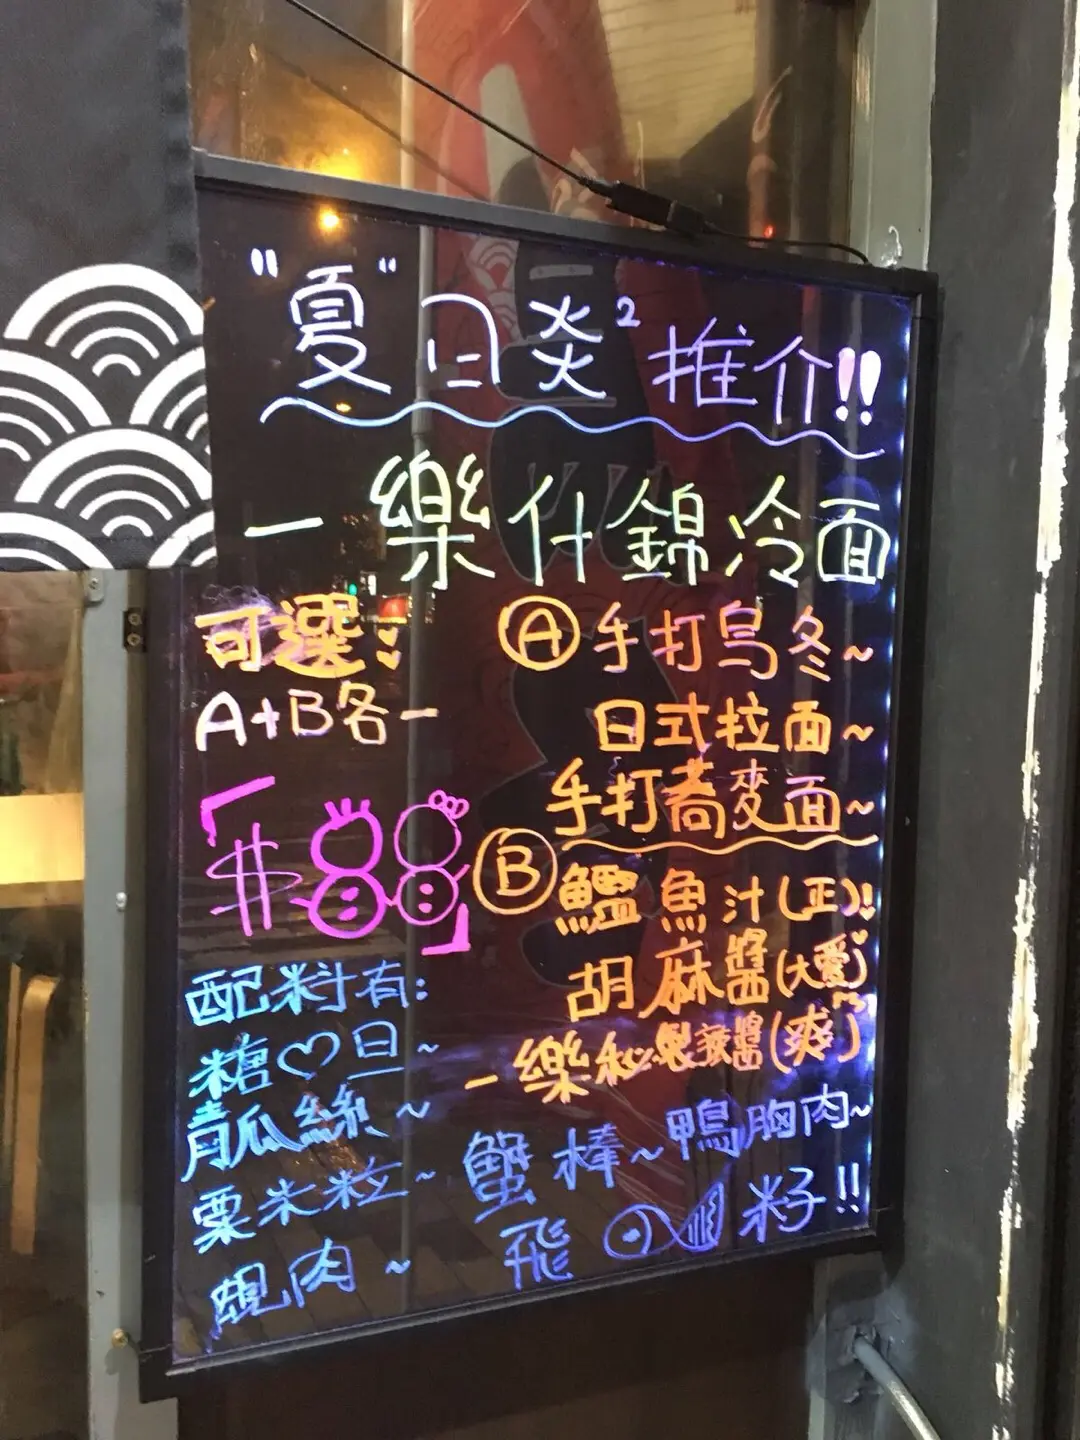 "夏"日炎²推介!!
一樂什錦冷面
可選:
A+B各一
「$88」
Ⓐ手打烏冬~
日式拉面~
手打蕎麥面~
Ⓑ鰮魚汁(正)!
胡麻醬(大愛)
一樂秘製辣醬(爽)
配料有:
糖♡旦~
青瓜絲~
粟米粒~
蟹棒~鴨胸肉~
蜆肉~
飛籽!!